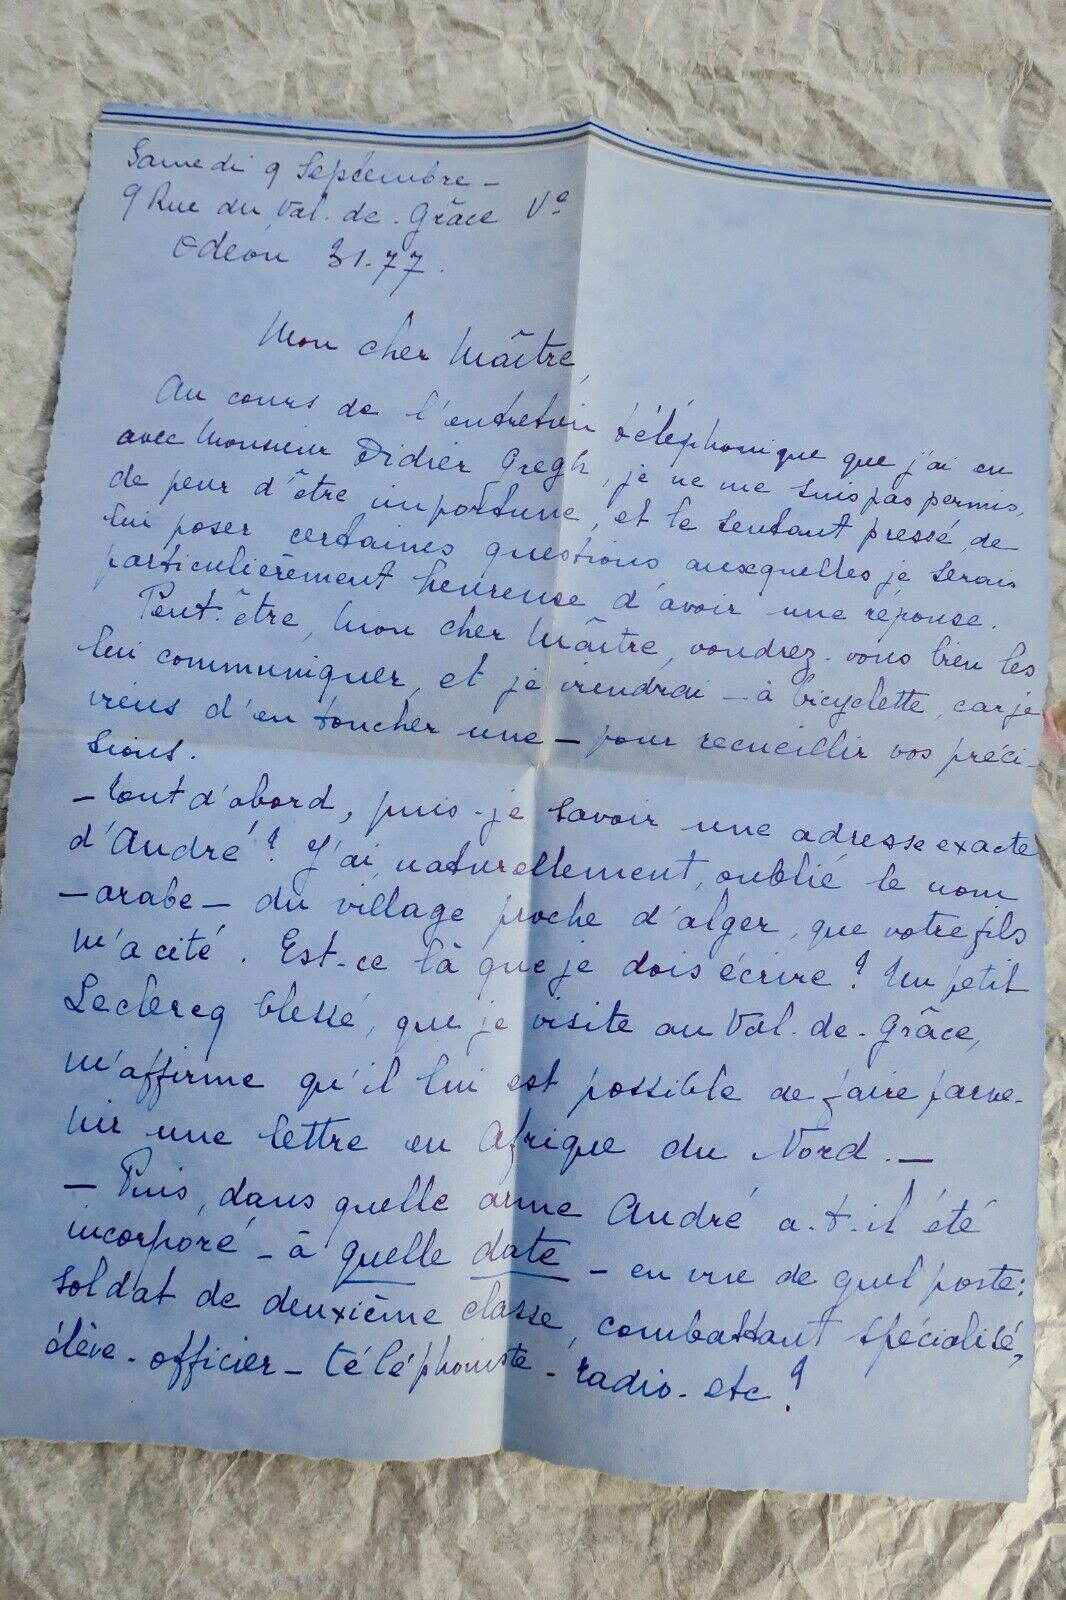 Samedi 9 Septembre -
9 Rue du Val. de. Grâce Ve
Odéon 31.77.
Mon cher Maître,
Au cours de l'entretien téléphonique que j'ai eu
avec Monsieur Didier Gregh, je ne me suis pas permis,
de peur d'être importune, et le sentant pressé, de
lui poser certaines questions auxquelles je serais
particulièrement heureuse d'avoir une réponse.
Peut-être, mon cher Maître, voudrez-vous bien les
lui communiquer, et je viendrai - à bicyclette, car je
viens d'en toucher une - pour recueillir vos préci-
sions.
- Tout d'abord, puis-je savoir une adresse exacte
d'André ? J'ai, naturellement, oublié le nom
- arabe - du village proche d'alger, que votre fils
m'a cité. Est-ce là que je dois écrire ? Un petit
Leclercq blessé, que je visite au Val. de. Grâce,
m'affirme qu'il lui est possible de faire parve-
nir une lettre en Afrique du Nord. -
- Puis, dans quelle arme André a-t-il été
incorporé - à quelle date - en vue de quel poste :
soldat de deuxième classe, combattant spécialisé,
élève-officier - téléphoniste - radio - etc ?